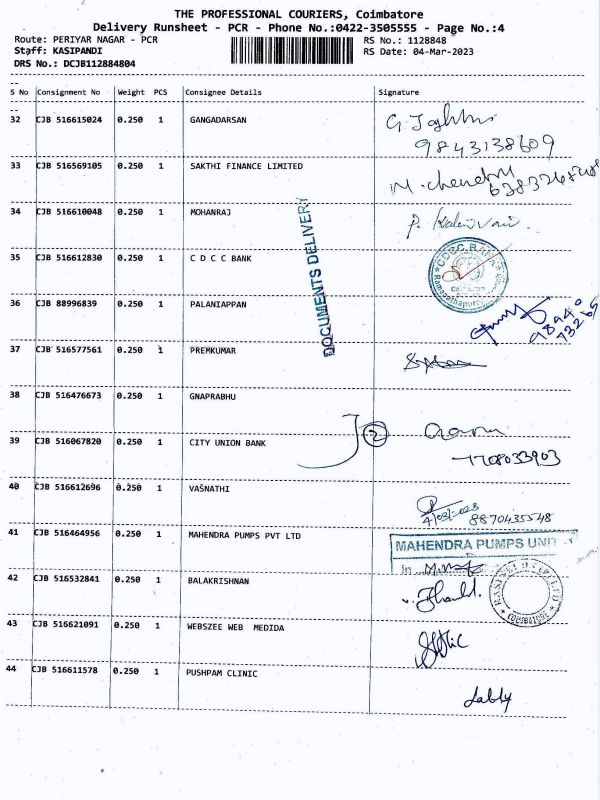 THE PROFESSIONAL COURIERS, Coimbatore
Delivery Runsheet - PCR - Phone No.:0422-3505555 - Page No.:4
Route: PERIYAR NAGAR - PCR RS No.: 1128848
Staff: KASIPANDI RS Date: 04-Mar-2023
DRS No.: DCJB112884804
S No Consignment No Weight PCS Consignee Details Signature
32 CJB 516615024 0.250 1 GANGADARSAN
9843138609
33 CJB 516569105 0.250 1 SAKTHI FINANCE LIMITED
34 CJB 516610048 0.250 1 MOHANRAJ
DOCUMENTS DELIVERY
35 CJB 516612830 0.250 1 C D C C BANK
36 CJB 88996839 0.250 1 PALANIAPPAN
98940
73265
37 CJB 516577561 0.250 1 PREMKUMAR
38 CJB 516476673 0.250 1 GNAPRABHU
2
39 CJB 516067820 0.250 1 CITY UNION BANK
40 CJB 516612696 0.250 1 VASNATHI
8870435548
41 CJB 516464956 0.250 1 MAHENDRA PUMPS PVT LTD
MAHENDRA PUMPS UNIT
42 CJB 516532841 0.250 1 BALAKRISHNAN
COIMBATORE
43 CJB 516621091 0.250 1 WEBSZEE WEB MEDIDA
44 CJB 516611578 0.250 1 PUSHPAM CLINIC